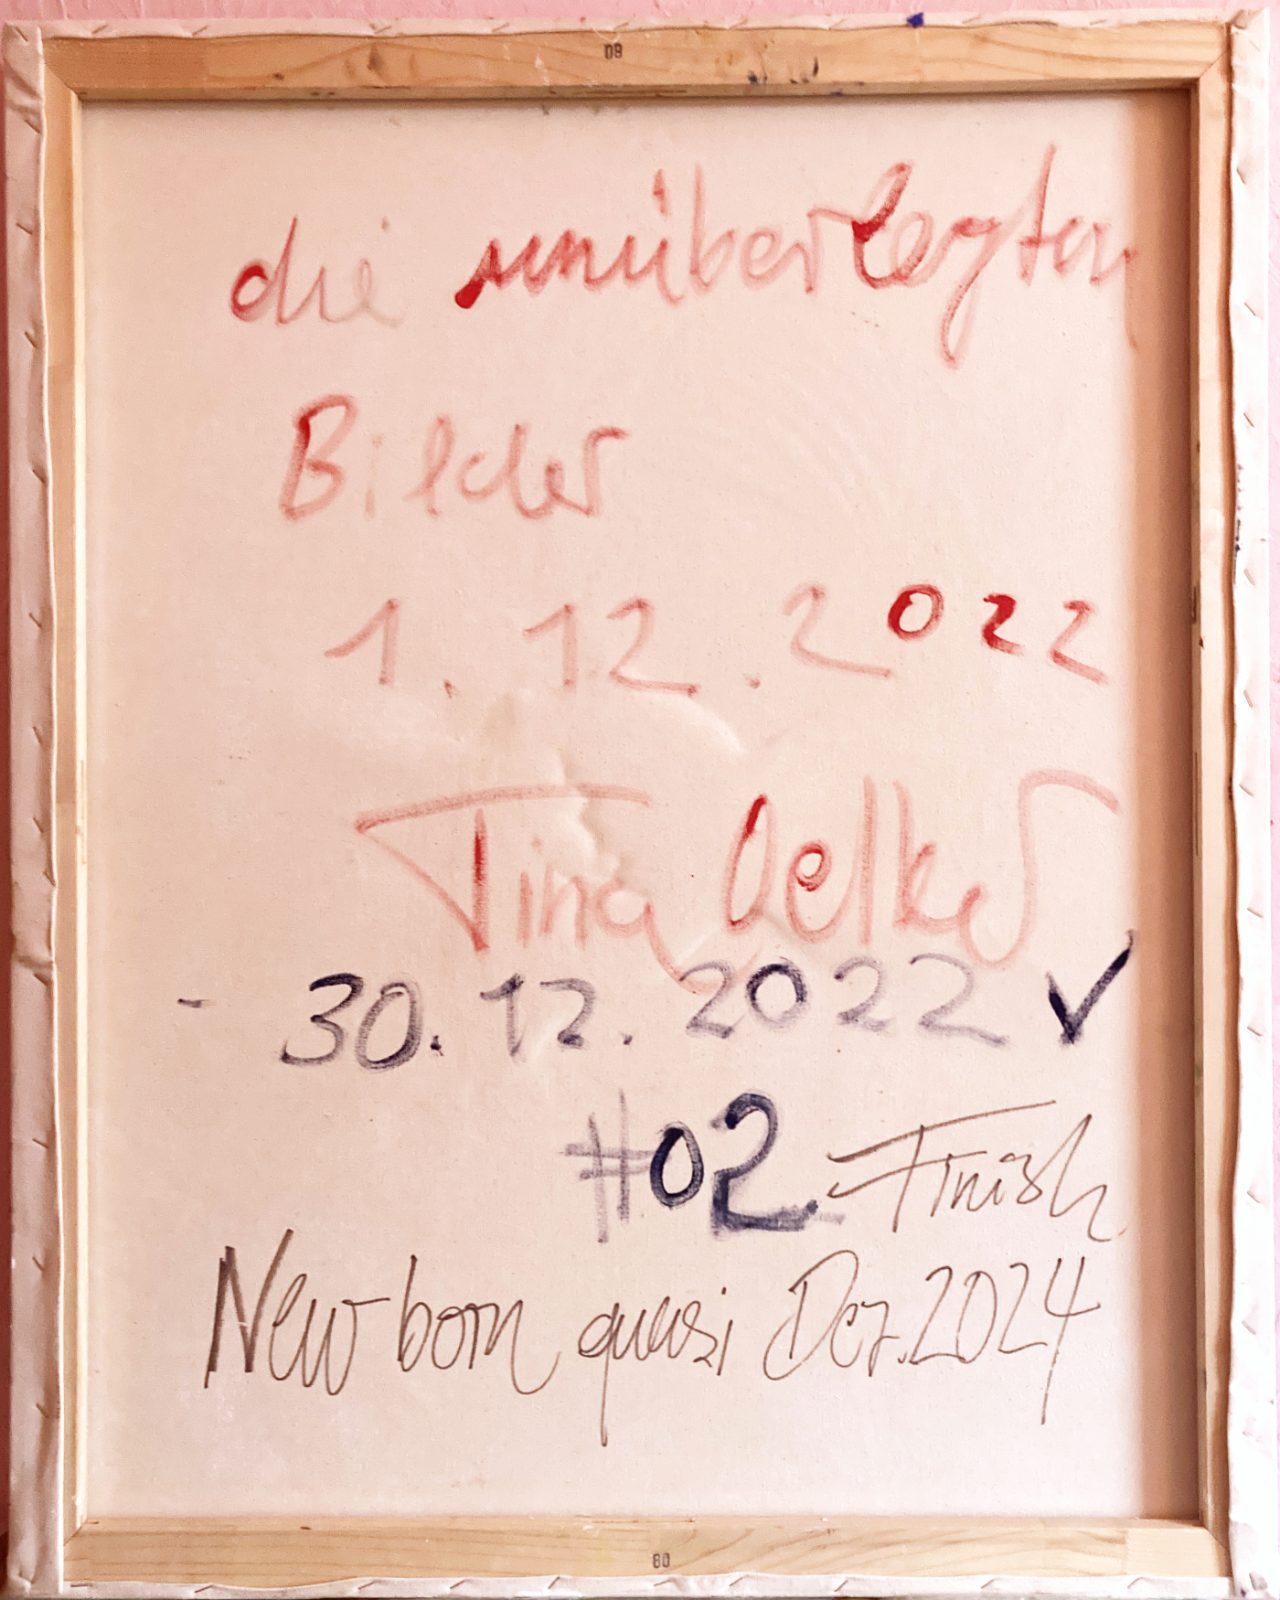 80
die unüberlegten
Bilder
1.12.2022
Tina Oelker
- 30.12.2022 ✓
#02 Finish
Newborn quasi Dez. 2024
80